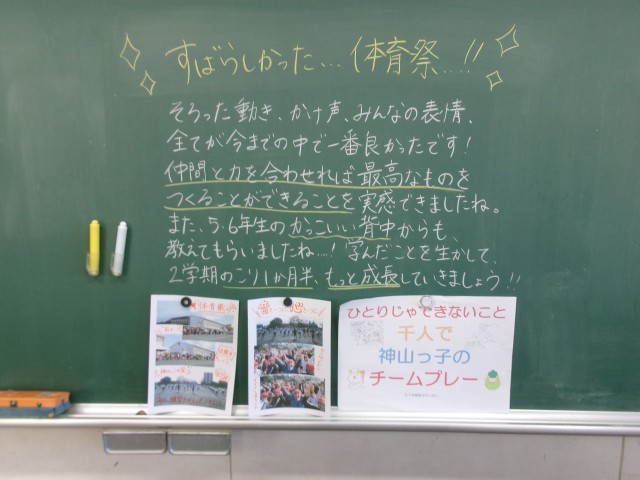 すばらしかった…体育祭…!!
そろった動き、かけ声、みんなの表情、
全てが今までの中で一番良かったです!
仲間と力を合わせれば最高なものを
つくることができることを実感できましたね。
また、5・6年生のかっこいい背中からも、
教えてもらいましたね…!学んだことを生かして、
2学期のこり1か月半、もっと成長していきましょう!!
ひとりじゃできないこと
千人で
神山っ子の
チームプレー